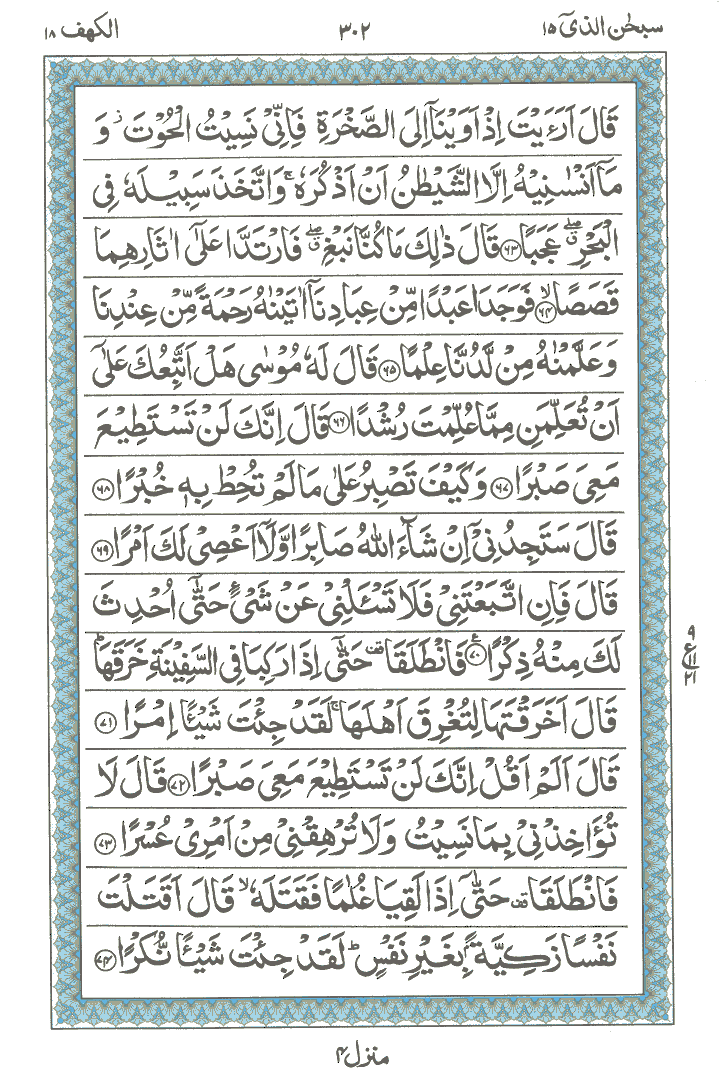 سبحٰن الذیۤ ۱۵
۳۰۲
الکهف ۱۸
قَالَ اَرَءَیْتَ اِذْ اَوَیْنَاۤ اِلَی الصَّخْرَةِ فَاِنِّیْ نَسِیْتُ الْحُوْتَ ؗ وَ
مَاۤ اَنْسٰىنِیْهُ اِلَّا الشَّیْطٰنُ اَنْ اَذْكُرَهٗ ۚ وَاتَّخَذَ سَبِیْلَهٗ فِی
الْبَحْرِ ۖۗ عَجَبًا ﴿۶۳﴾ قَالَ ذٰلِكَ مَا كُنَّا نَبْغِ ۖۗ فَارْتَدَّا عَلٰۤی اٰثَارِهِمَا
قَصَصًا ۙ﴿۶۴﴾ فَوَجَدَا عَبْدًا مِّنْ عِبَادِنَاۤ اٰتَیْنٰهُ رَحْمَةً مِّنْ عِنْدِنَا
وَعَلَّمْنٰهُ مِنْ لَّدُنَّا عِلْمًا ﴿۶۵﴾ قَالَ لَهٗ مُوْسٰی هَلْ اَتَّبِعُكَ عَلٰۤی
اَنْ تُعَلِّمَنِ مِمَّا عُلِّمْتَ رُشْدًا ﴿۶۶﴾ قَالَ اِنَّكَ لَنْ تَسْتَطِیْعَ
مَعِیَ صَبْرًا ﴿۶۷﴾ وَكَیْفَ تَصْبِرُ عَلٰی مَا لَمْ تُحِطْ بِهٖ خُبْرًا ﴿۶۸﴾
قَالَ سَتَجِدُنِیْۤ اِنْ شَآءَ اللّٰهُ صَابِرًا وَّلَاۤ اَعْصِیْ لَكَ اَمْرًا ﴿۶۹﴾
قَالَ فَاِنِ اتَّبَعْتَنِیْ فَلَا تَسْـَٔلْنِیْ عَنْ شَیْءٍ حَتّٰۤی اُحْدِثَ
لَكَ مِنْهُ ذِكْرًا ﴿۷۰﴾ۧ فَانْطَلَقَا ۥ حَتّٰۤی اِذَا رَكِبَا فِی السَّفِیْنَةِ خَرَقَهَا ؕ
۹ ع ۱۱ ۲۱
قَالَ اَخَرَقْتَهَا لِتُغْرِقَ اَهْلَهَا ۚ لَقَدْ جِئْتَ شَیْـًٔا اِمْرًا ﴿۷۱﴾
قَالَ اَلَمْ اَقُلْ اِنَّكَ لَنْ تَسْتَطِیْعَ مَعِیَ صَبْرًا ﴿۷۲﴾ قَالَ لَا
تُؤَاخِذْنِیْ بِمَا نَسِیْتُ وَلَا تُرْهِقْنِیْ مِنْ اَمْرِیْ عُسْرًا ﴿۷۳﴾
فَانْطَلَقَا ۥ حَتّٰۤی اِذَا لَقِیَا غُلٰمًا فَقَتَلَهٗ ۙ قَالَ اَقَتَلْتَ
نَفْسًا زَكِیَّةًۢ بِغَیْرِ نَفْسٍ ؕ لَقَدْ جِئْتَ شَیْـًٔا نُّكْرًا ﴿۷۴﴾
منزل ۴